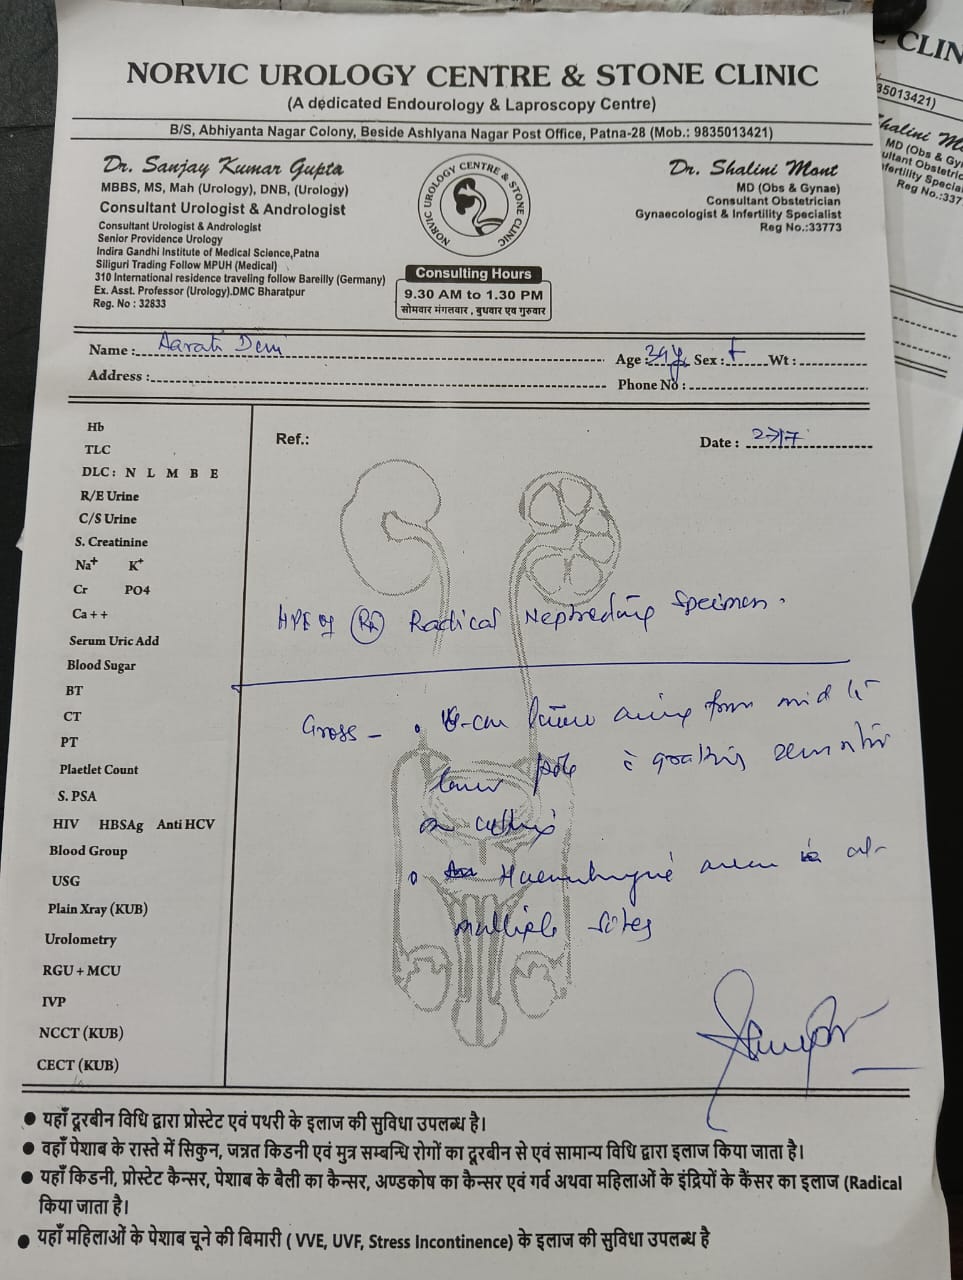 NORVIC UROLOGY CENTRE & STONE CLINIC
(A dedicated Endourology & Laproscopy Centre)
B/S, Abhiyanta Nagar Colony, Beside Ashlyana Nagar Post Office, Patna-28 (Mob.: 9835013421)
Dr. Sanjay Kumar Gupta
MBBS, MS, Mah (Urology), DNB, (Urology)
Consultant Urologist & Andrologist
Consultant Urologist & Andrologist
Senior Providence Urology
Indira Gandhi Institute of Medical Science,Patna
Siliguri Trading Follow MPUH (Medical)
310 International residence traveling follow Bareilly (Germany)
Ex. Asst. Professor (Urology).DMC Bharatpur
Reg. No : 32833
NORVIC UROLOGY CENTRE & STONE CLINIC
Consulting Hours
9.30 AM to 1.30 PM
सोमवार मंगलवार , बुधवार एवं गुरुवार
Dr. Shalini Mont
MD (Obs & Gynae)
Consultant Obstetrician
Gynaecologist & Infertility Specialist
Reg No.:33773
Name : Aarati Devi Age : 39y Sex : f Wt :
Address : Phone No :
Ref.: Date : 27/7
Hb
TLC
DLC : N L M B E
R/E Urine
C/S Urine
S. Creatinine
Na+ K+
Cr PO4
Ca + +
Serum Uric Add
Blood Sugar
BT
CT
PT
Plaetlet Count
S. PSA
HIV HBSAg Anti HCV
Blood Group
USG
Plain Xray (KUB)
Urolometry
RGU + MCU
IVP
NCCT (KUB)
CECT (KUB)
HPE of Radical Specimen.
Gross - arising from mid
lower pole
on cutting
Haemorrhagic area at
multiple sites
● यहाँ दूरबीन विधि द्वारा प्रोस्टेट एवं पथरी के इलाज की सुविधा उपलब्ध है।
● वहाँ पेशाब के रास्ते में सिकुन, जन्नत किडनी एवं मुत्र सम्बन्धि रोगों का दूरबीन से एवं सामान्य विधि द्वारा इलाज किया जाता है।
● यहाँ किडनी, प्रोस्टेट कैन्सर, पेशाब के बैली का कैन्सर, अण्डकोष का कैन्सर एवं गर्व अथवा महिलाओं के इंद्रियों के कैंसर का इलाज (Radical
किया जाता है।
● यहाँ महिलाओं के पेशाब चूने की बिमारी ( VVE, UVF, Stress Incontinence) के इलाज की सुविधा उपलब्ध है
CLIN
35013421)
halini M
MD (Obs & Gy
ultant Obstetric
nfertility Specia
Reg No.:337